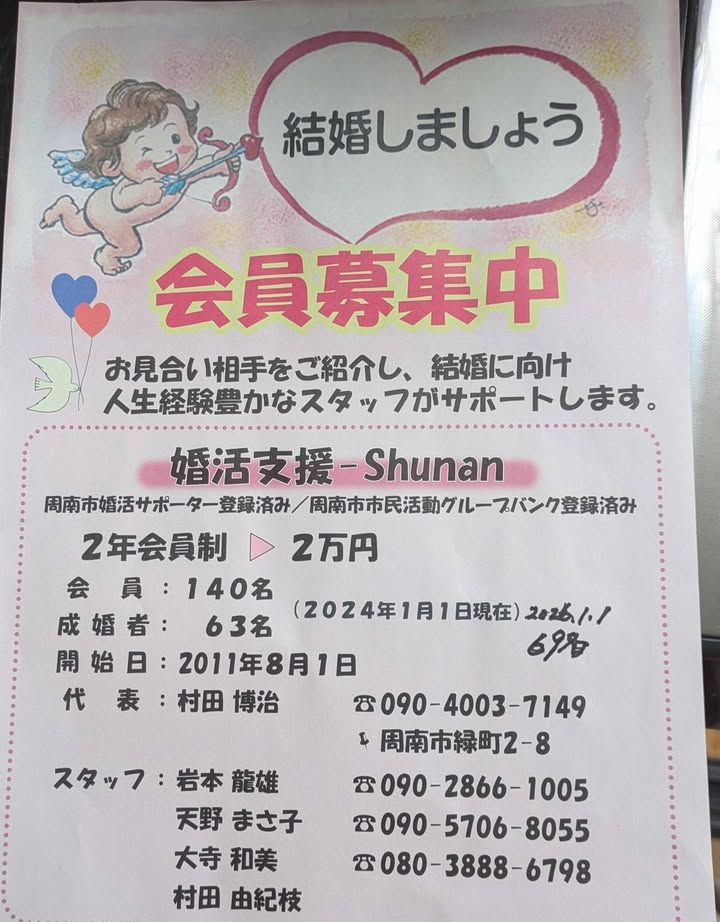 結婚しましょう
会員募集中
お見合い相手をご紹介し、結婚に向け
人生経験豊かなスタッフがサポートします。
婚活支援-Shunan
周南市婚活サポーター登録済み/周南市市民活動グループバンク登録済み
2年会員制 ▷ 2万円
会員:140名
(2024年1月1日現在) 2026.1.1
成婚者: 63名
69名
開始日:2011年8月1日
代表:村田 博治 ☎090-4003-7149
周南市緑町2-8
スタッフ:岩本 龍雄 ☎090-2866-1005
天野 まさ子 ☎090-5706-8055
大寺 和美 ☎080-3888-6798
村田 由紀枝